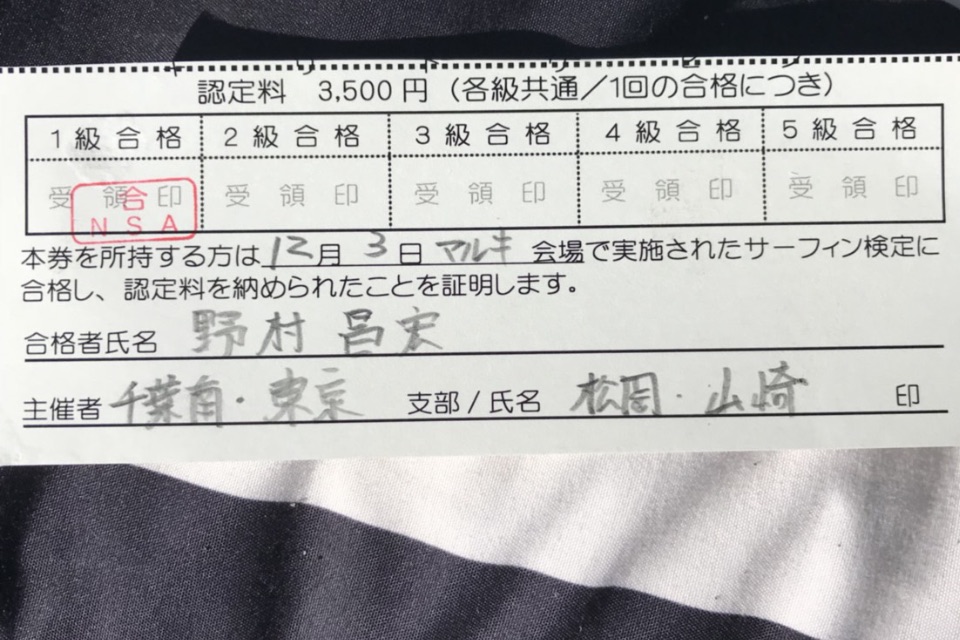 キリトリセン
認定料 3,500円（各級共通／1回の合格につき）
1級合格 2級合格 3級合格 4級合格 5級合格
受領印 受領印 受領印 受領印 受領印
合
NSA
本券を所持する方は 12月 3日 マルキ 会場で実施されたサーフィン検定に
合格し、認定料を納められたことを証明します。
合格者氏名 野村昌宏
主催者 千葉南・東京 支部/氏名 松岡・山崎 印